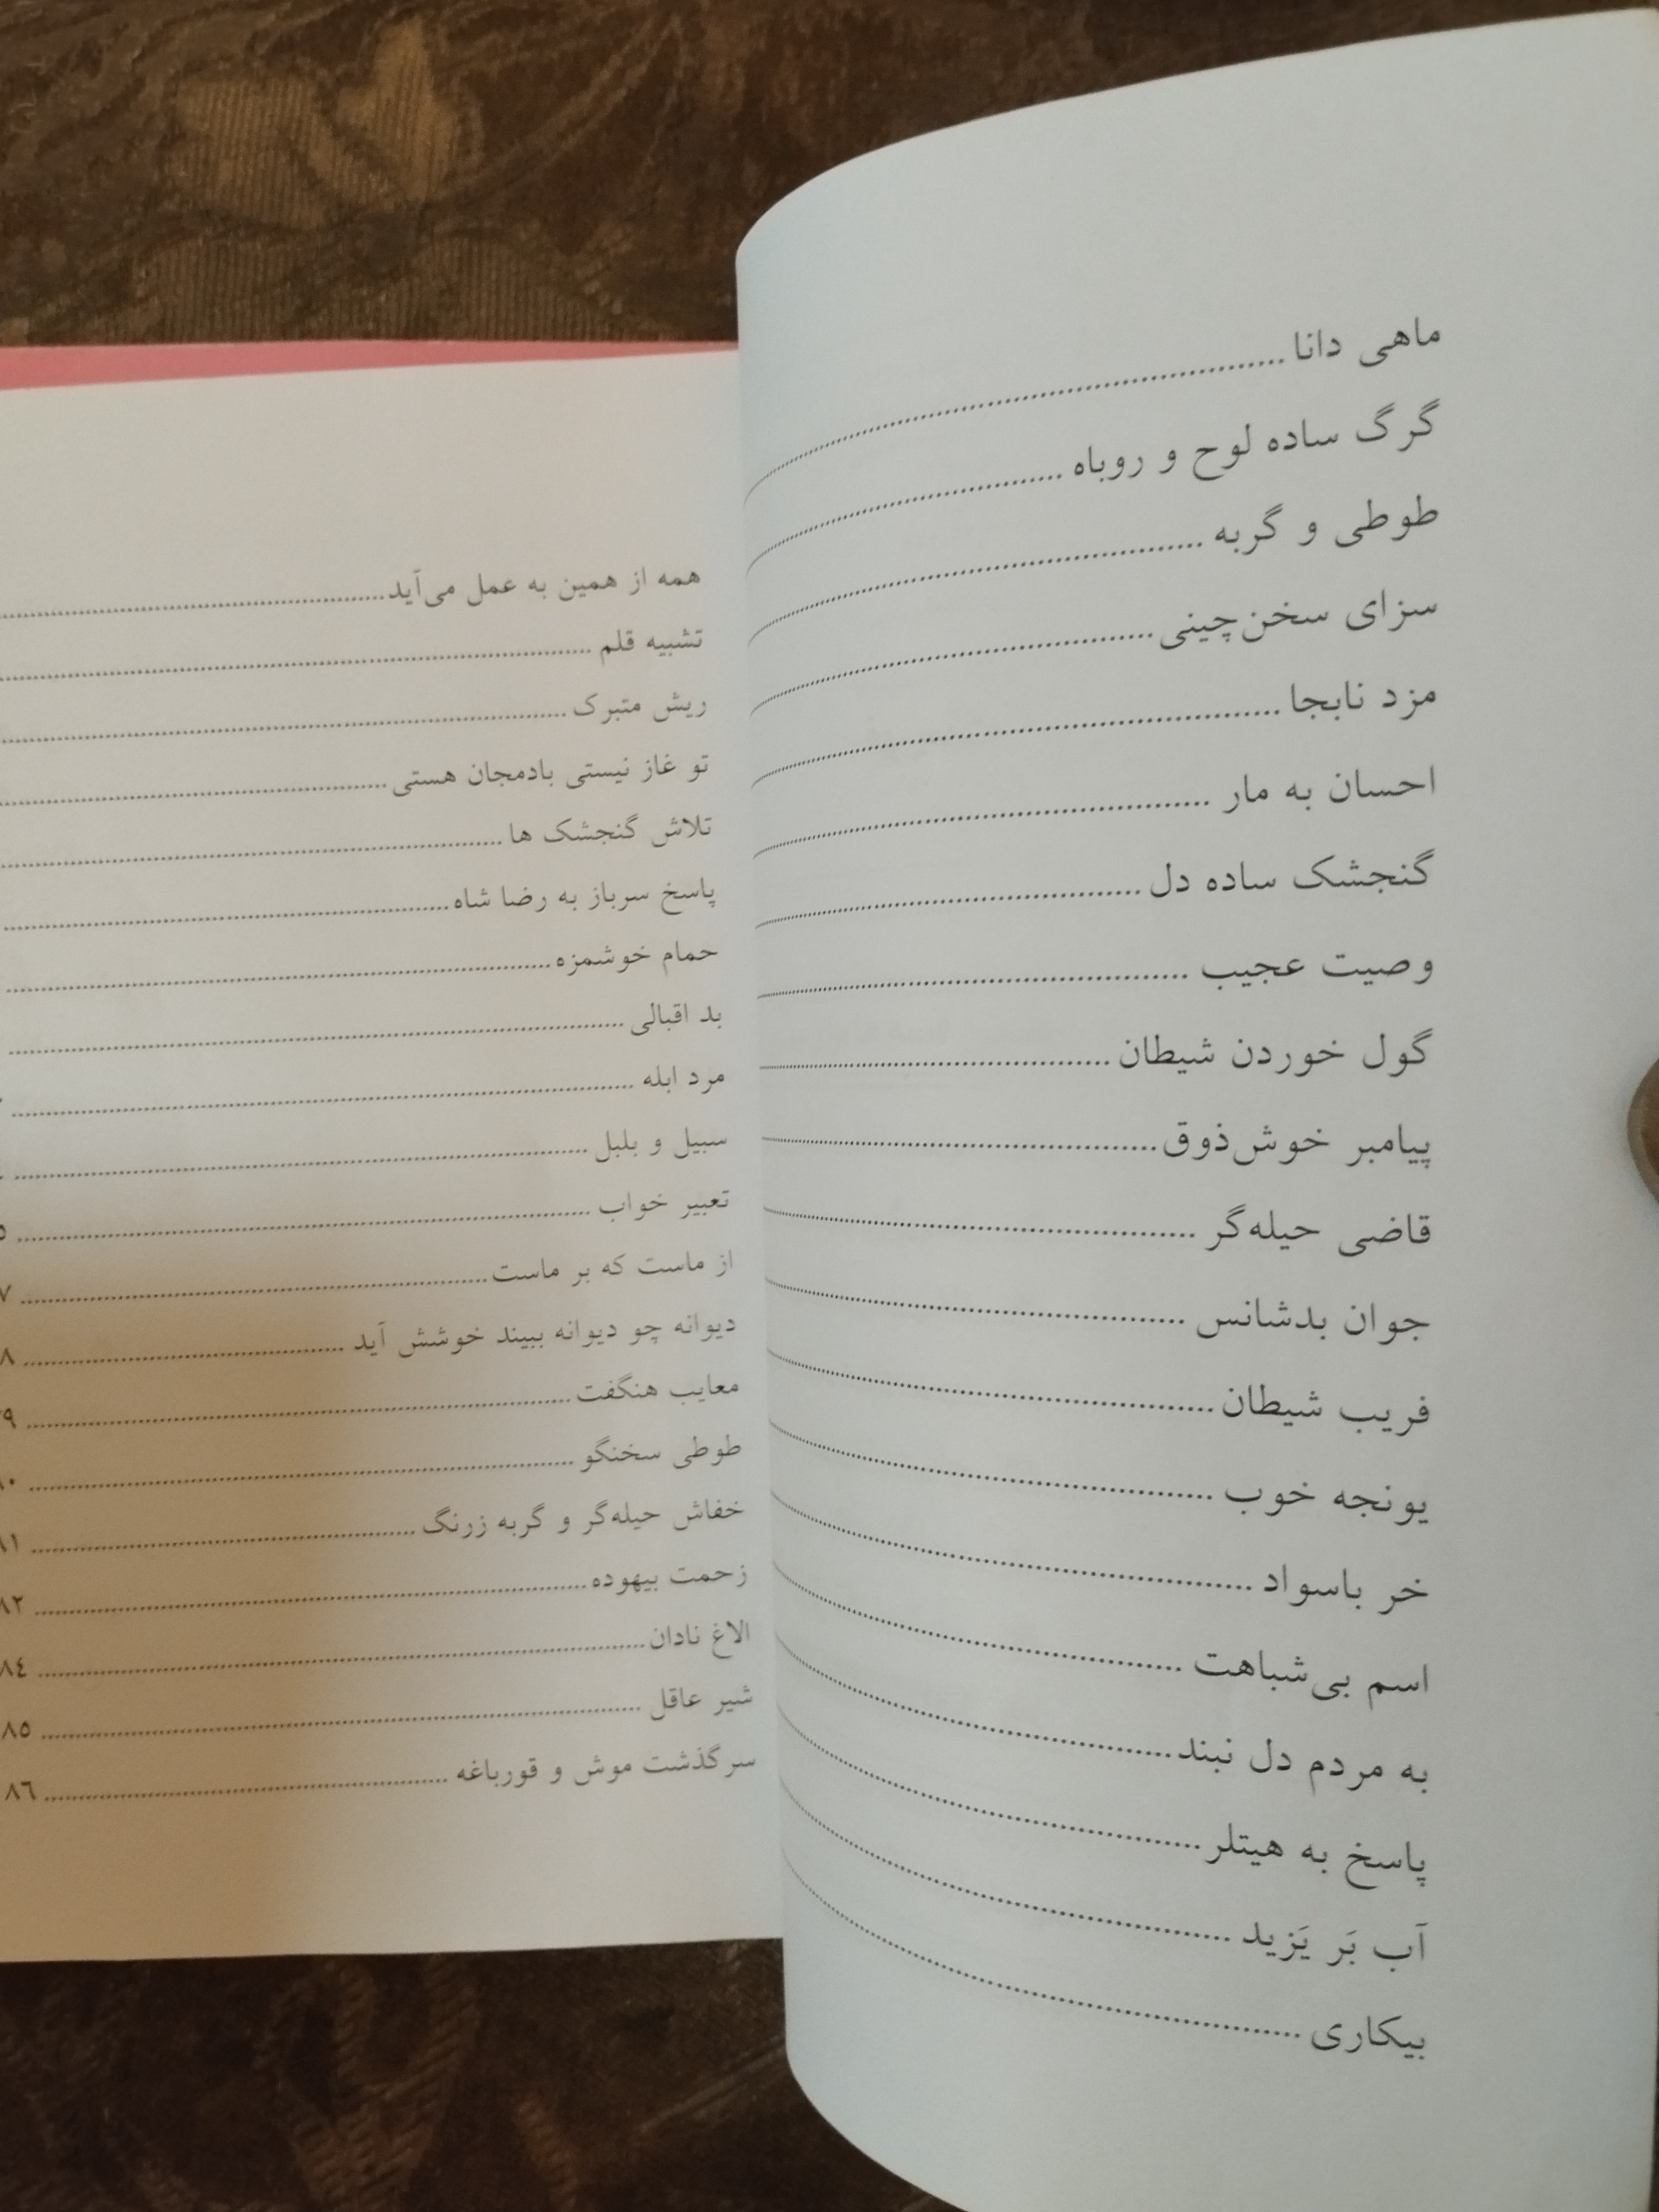 ماهی دانا
گرگ ساده لوح و روباه
طوطی و گربه
سزای سخن‌چینی
مزد نابجا
احسان به مار
گنجشک ساده دل
وصیت عجیب
گول خوردن شیطان
پیامبر خوش‌ذوق
قاضی حیله‌گر
جوان بدشانس
فریب شیطان
یونجه خوب
خر باسواد
اسم بی‌شباهت
به مردم دل نبند
پاسخ به هیتلر
آب بَر یَزید
بیکاری
همه از همین به عمل می‌آید
تشبیه قلم
ریش متبرک
تو غاز نیستی بادمجان هستی
تلاش گنجشک ها
پاسخ سرباز به رضا شاه
حمام خوشمزه
بد اقبالی
مرد ابله
سبیل و بلبل
تعبیر خواب
از ماست که بر ماست
دیوانه چو دیوانه ببیند خوشش آید
معایب هنگفت
طوطی سخنگو
خفاش حیله‌گر و گربه زرنگ
زحمت بیهوده ۸۲
الاغ نادان ۸۴
شیر عاقل ۸۵
سرگذشت موش و قورباغه ۸۶